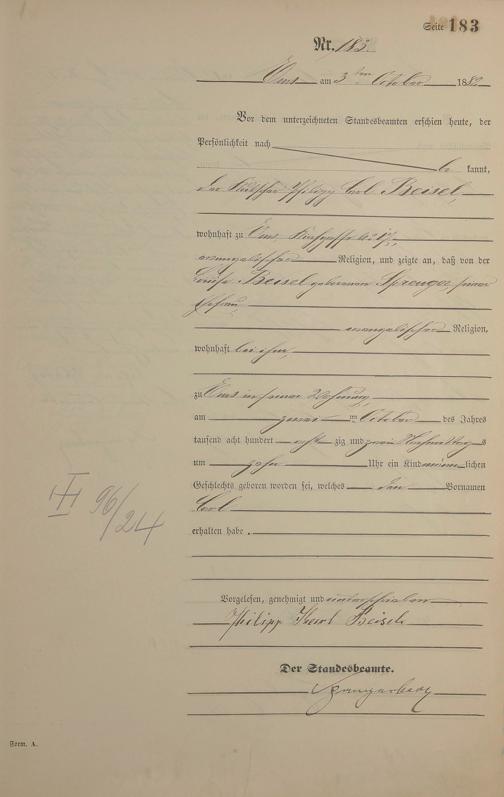 Seite 183
Nr. 183.
Ems am 3ten October 1882
Vor dem unterzeichneten Standesbeamten erschien heute, der
Persönlichkeit nach
be kannt,
der Kutscher Philipp Carl Beisel,
wohnhaft zu Ems,
evangelischer Religion, und zeigte an, daß von der
Louise Beisel geborenen Sprenger, seiner
Ehefrau,
evangelischer Religion,
wohnhaft bei ihm,
zu Ems in seiner Wohnung,
am zweiten October des Jahres
tausend acht hundert acht zig und zwei Nachmittag s
um zehn Uhr ein Kind männ lichen
Geschlechts geboren worden sei, welches den Vornamen
Carl
erhalten habe.
III 96/24
Vorgelesen, genehmigt und unterschrieben
Philipp Karl Beisel
Der Standesbeamte.
Form. A.